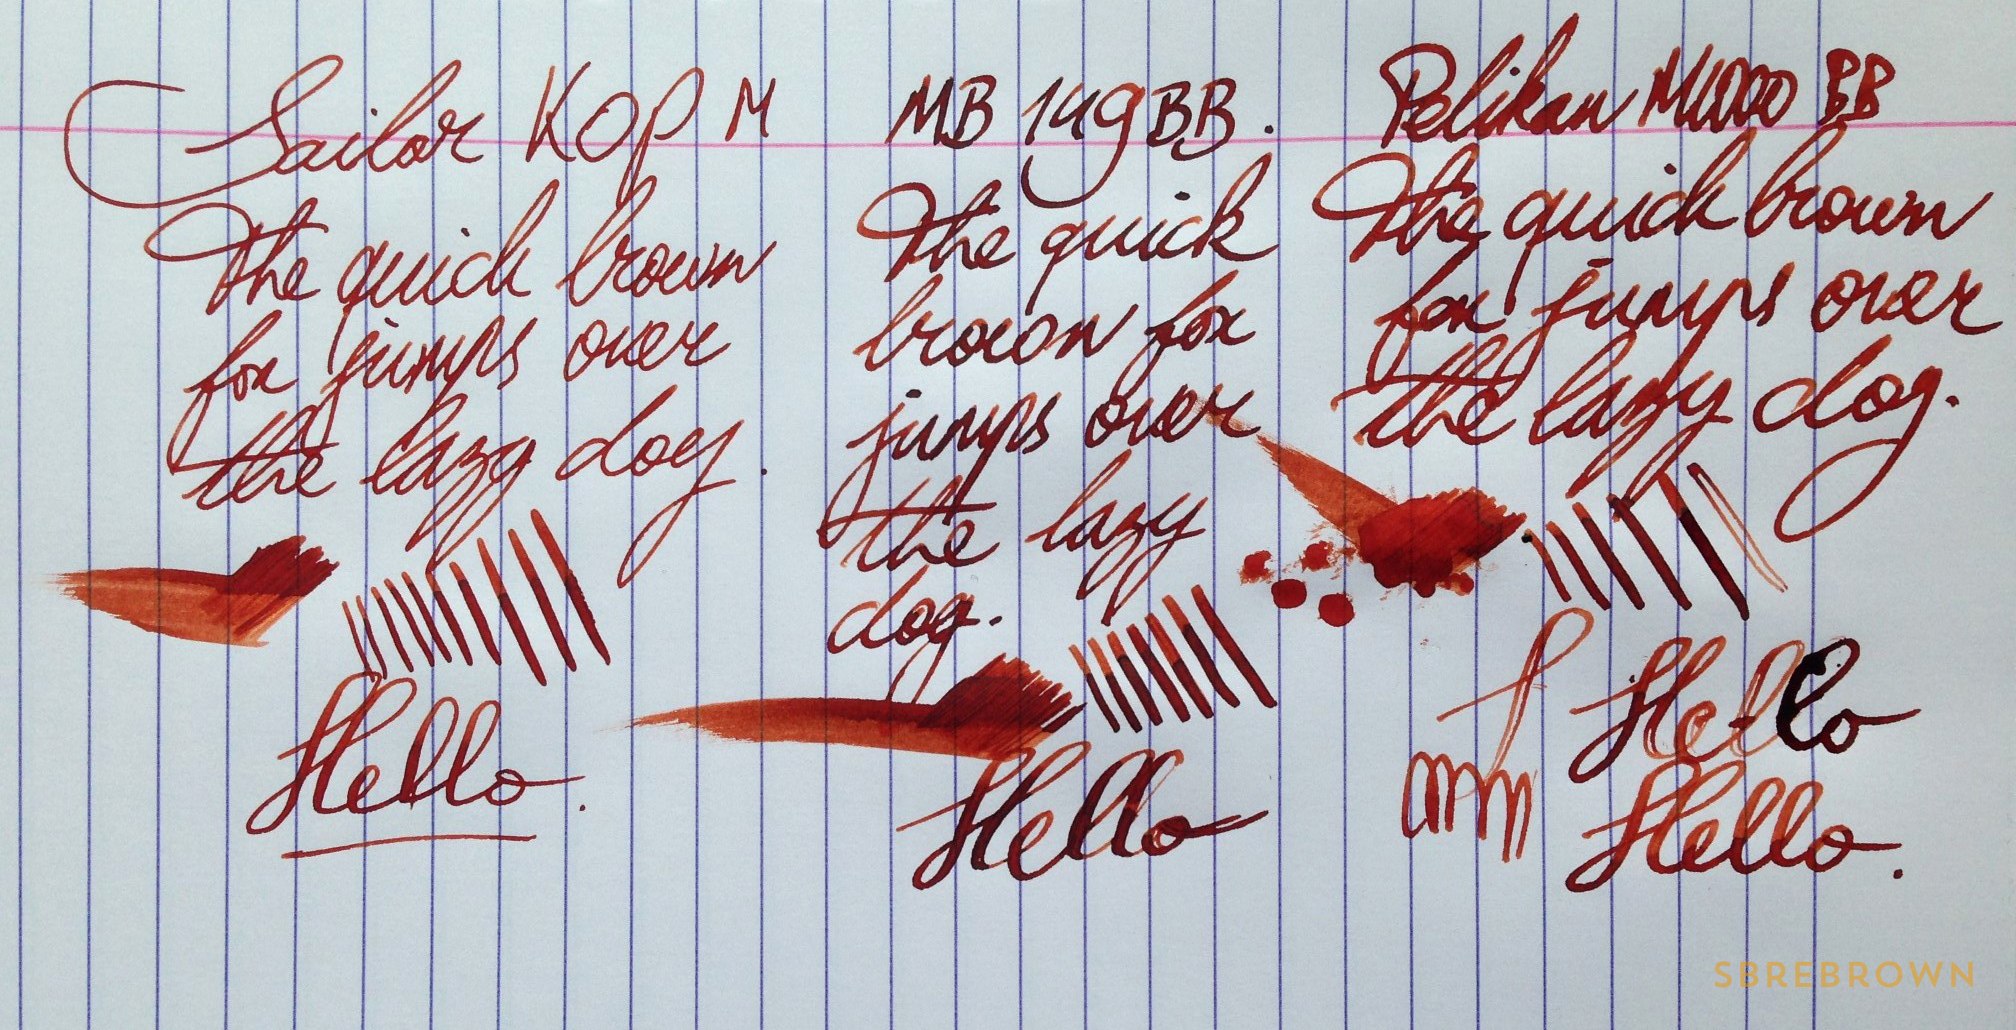 Sailor KOP M
The quick brown
fox jumps over
the lazy dog.
Hello.
MB 149 BB.
The quick
brown fox
jumps over
the lazy
dog.
Hello
Pelikan M1000 BB
The quick brown
fox jumps over
the lazy dog.
Hello
Hello.
SBREBROWN